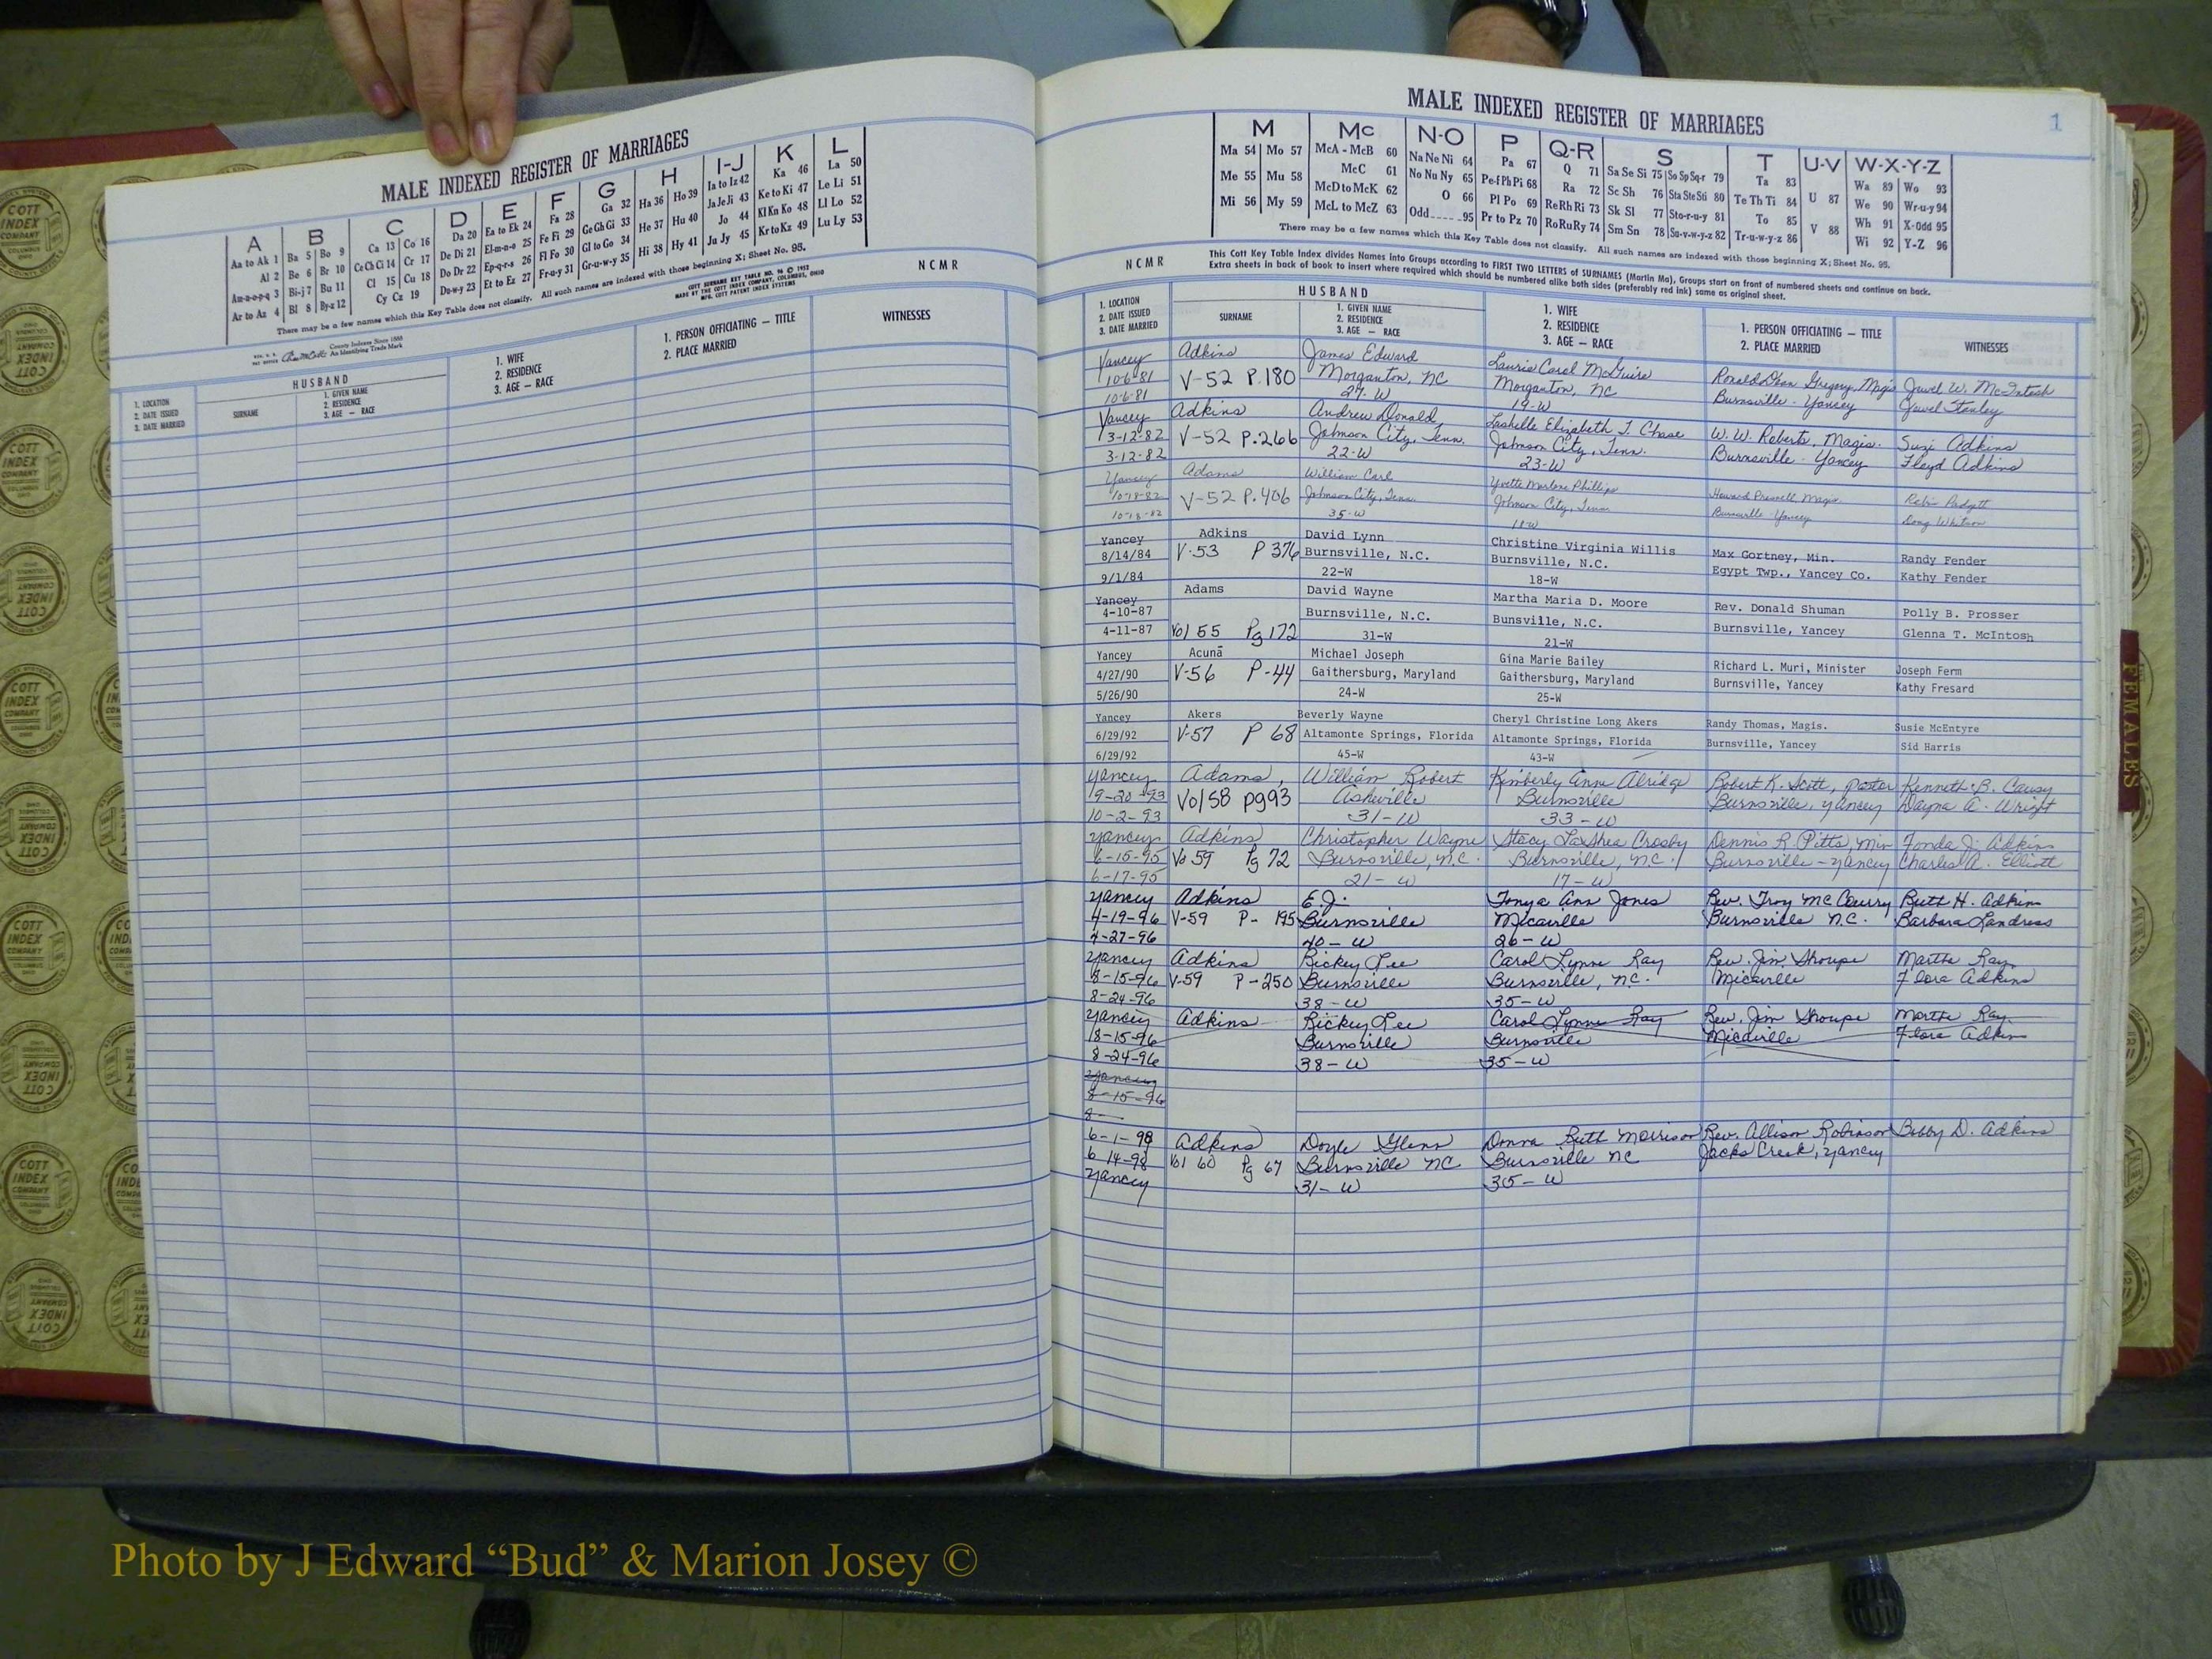 MALE INDEXED REGISTER OF MARRIAGES
A B C D E F G H I-J K L
Aa to Ak 1 Ba 5 Bo 9 Ca 13 Co 16 Da 20 Ea to Ek 24 Fa 28 Ga 32 Ha 36 Ho 39 Ia to Iz 42 Ka 46 La 50
Al 2 Be 6 Br 10 Ce Ch Ci 14 Cr 17 De Di 21 El-m-n-o 25 Fe Fi 29 Ge Gh Gi 33 He 37 Hu 40 Ja Je Ji 43 Ke to Ki 47 Le Li 51
Am-n-o-p-q 3 Bi-j 7 Bu 11 Cl 15 Cu 18 Do Dr 22 Ep-q-r-s 26 Fl Fo 30 Gl to Go 34 Hi 38 Hy 41 Jo 44 Kl Kn Ko 48 Ll Lo 52
Ar to Az 4 Bl 8 By-z 12 Cy Cz 19 Du-w-y 23 Et to Ez 27 Fr-u-y 31 Gr-u-w-y 35 Ju Jy 45 Kr to Kz 49 Lu Ly 53
There may be a few names which this Key Table does not classify. All such names are indexed with those beginning X; Sheet No. 95.
County Indexes Since 1888
An Identifying Trade Mark
COTT SURNAME KEY TABLE NO. 96 © 1952
MADE BY THE COTT INDEX COMPANY, COLUMBUS, OHIO
MFG. COTT PATENT INDEX SYSTEMS
NCMR
1. LOCATION
2. DATE ISSUED
3. DATE MARRIED
HUSBAND
SURNAME
1. GIVEN NAME
2. RESIDENCE
3. AGE — RACE
1. WIFE
2. RESIDENCE
3. AGE — RACE
1. PERSON OFFICIATING — TITLE
2. PLACE MARRIED
WITNESSES
MALE INDEXED REGISTER OF MARRIAGES
1
M Mc N-O P Q-R S T U-V W-X-Y-Z
Ma 54 Mo 57 McA - McB 60 Na Ne Ni 64 Pa 67 Q 71 Sa Se Si 75 So Sp Sq-r 79 Ta 83 U 87 Wa 89 Wo 93
Me 55 Mu 58 McC 61 No Nu Ny 65 Pe-f Ph Pi 68 Ra 72 Sc Sh 76 Sta Ste Sti 80 Te Th Ti 84 V 88 We 90 Wr-u-y 94
Mi 56 My 59 McD to McK 62 O 66 Pl Po 69 Re Rh Ri 73 Sk Sl 77 Sto-r-u-y 81 To 85 Wh 91 X-Odd 95
McL to McZ 63 Odd 95 Pr to Pz 70 Ro Ru Ry 74 Sm Sn 78 Su-v-w-y-z 82 Tr-u-w-y-z 86 Wi 92 Y-Z 96
There may be a few names which this Key Table does not classify. All such names are indexed with those beginning X; Sheet No. 95.
NCMR
This Cott Key Table Index divides Names into Groups according to FIRST TWO LETTERS of SURNAMES (Martin Ma), Groups start on front of numbered sheets and continue on back.
Extra sheets in back of book to insert where required which should be numbered alike both sides (preferably red ink) same as original sheet.
1. LOCATION
2. DATE ISSUED
3. DATE MARRIED
HUSBAND
SURNAME
1. GIVEN NAME
2. RESIDENCE
3. AGE — RACE
1. WIFE
2. RESIDENCE
3. AGE — RACE
1. PERSON OFFICIATING — TITLE
2. PLACE MARRIED
WITNESSES
Yancey Adkins James Edward Laurie Carol McGuire Ronald Dean Gregory, Magis Jewel W. McIntosh
10-6-81 V-52 P.180 Morganton, NC Morganton, NC Burnsville - Yancey Jewel Stanley
10-6-81 27-W 19-W
Yancey Adkins Andrew Donald Lashelle Elizabeth T. Chase W. W. Roberts, Magis. Suzi Adkins
3-12-82 V-52 P.266 Johnson City, Tenn. Johnson City, Tenn. Burnsville - Yancey Floyd Adkins
3-12-82 22-W 23-W
Yancey Adams William Carl Yvette Marlene Phillips Howard Presnell, Magis
10-18-82 V-52 P.406 Johnson City, Tenn. Johnson City, Tenn Burnsville - Yancey Doug Whitson
10-18-82 35-W 18-W
Yancey Adkins David Lynn Christine Virginia Willis Max Gortney, Min. Randy Fender
8/14/84 V-53 P 376 Burnsville, N.C. Burnsville, N.C. Egypt Twp., Yancey Co. Kathy Fender
9/1/84 22-W 18-W
Yancey Adams David Wayne Martha Maria D. Moore Rev. Donald Shuman Polly B. Prosser
4-10-87 Burnsville, N.C. Bunsville, N.C. Burnsville, Yancey Glenna T. McIntosh
4-11-87 Vol 55 Pg 172 31-W 21-W
Yancey Acunā Michael Joseph Gina Marie Bailey Richard L. Muri, Minister Joseph Ferm
4/27/90 V-56 P-44 Gaithersburg, Maryland Gaithersburg, Maryland Burnsville, Yancey Kathy Fresard
5/26/90 24-W 25-W
Yancey Akers Beverly Wayne Cheryl Christine Long Akers Randy Thomas, Magis. Susie McEntyre
6/29/92 V-57 P 68 Altamonte Springs, Florida Altamonte Springs, Florida Burnsville, Yancey Sid Harris
6/29/92 45-W 43-W
Yancey Adams, William Robert Kimberly Anne Alridge Robert K. Scott, Pastor Kenneth B. Causy
9-20-93 Vol 58 pg 93 Asheville Burnsville Burnsville, Yancey Dayna A. Wright
10-2-93 31-W 33-W
Yancey Adkins Christopher Wayne Stacy LaShea Crosby Dennis R. Pitts, Min Fonda J. Adkins
6-15-95 Vo 59 Pg 72 Burnsville, N.C. Burnsville, N.C. Burnsville - Yancey Charles A. Elliott
6-17-95 21-W 17-W
Yancey Adkins E.J. Tonya Ann Jones Rev. Troy McCourry Ruth H. Adkins
4-19-96 V-59 P-195 Burnsville Micaville Burnsville N.C. Barbara Landress
4-27-96 40-W 26-W
Yancey Adkins Rickey Lee Carol Lynne Ray Rev. Jim Shoupe Martha Ray
8-15-96 V-59 P-250 Burnsville Burnsville, N.C. Micaville Flora Adkins
8-24-96 38-W 35-W
Yancey Adkins Rickey Lee Carol Lynne Ray Rev. Jim Shoupe Martha Ray
8-15-96 Burnsville Burnsville Micaville Flora Adkins
8-24-96 38-W 35-W
Yancey
8-15-96
8-
6-1-98 Adkins Doyle Glenn Donna Ruth Morrison Rev. Allison Robinson Bobby D. Adkins
6-14-98 Vol 60 Pg 67 Burnsville NC Burnsville NC Jacks Creek, Yancey
Yancey 31-W 35-W
FEMALES
COTT INDEX COMPANY
Photo by J Edward “Bud” & Marion Josey ©